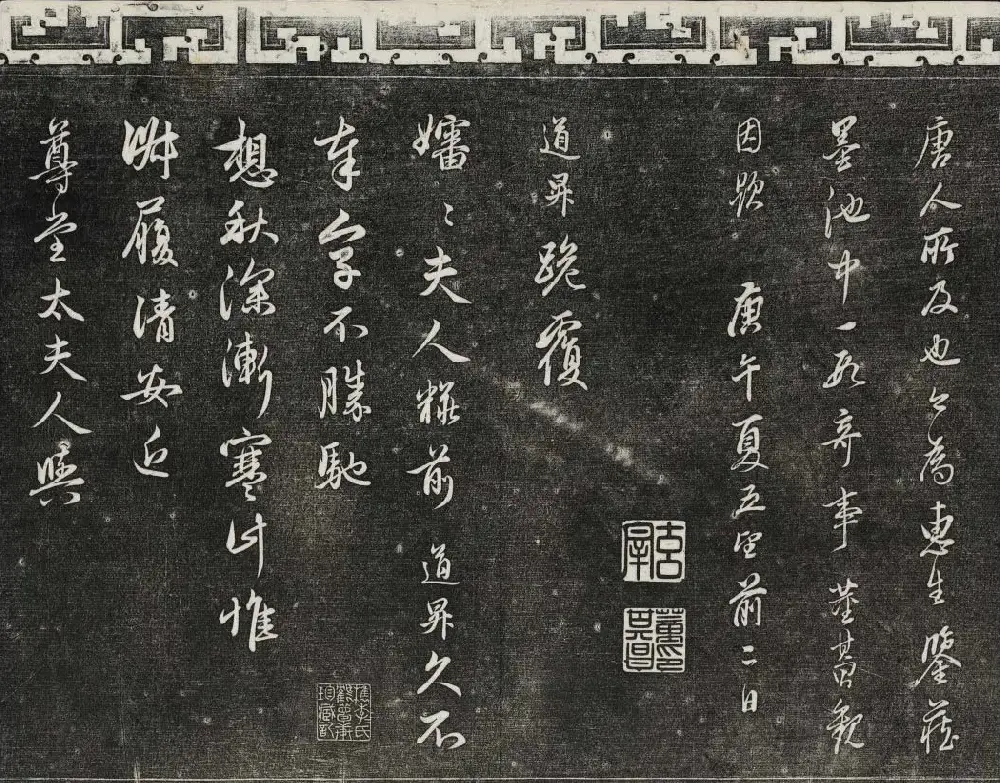 唐人所及也今為惠生鑒藏
墨池中一段奇事 董其昌觀
因題 庚午夏五望前二日
玄宰
道昇跪覆
嬸〻夫人粧前 道昇久不
奉字不勝馳
想秋深漸寒計惟
淑履清安近
尊堂太夫人與